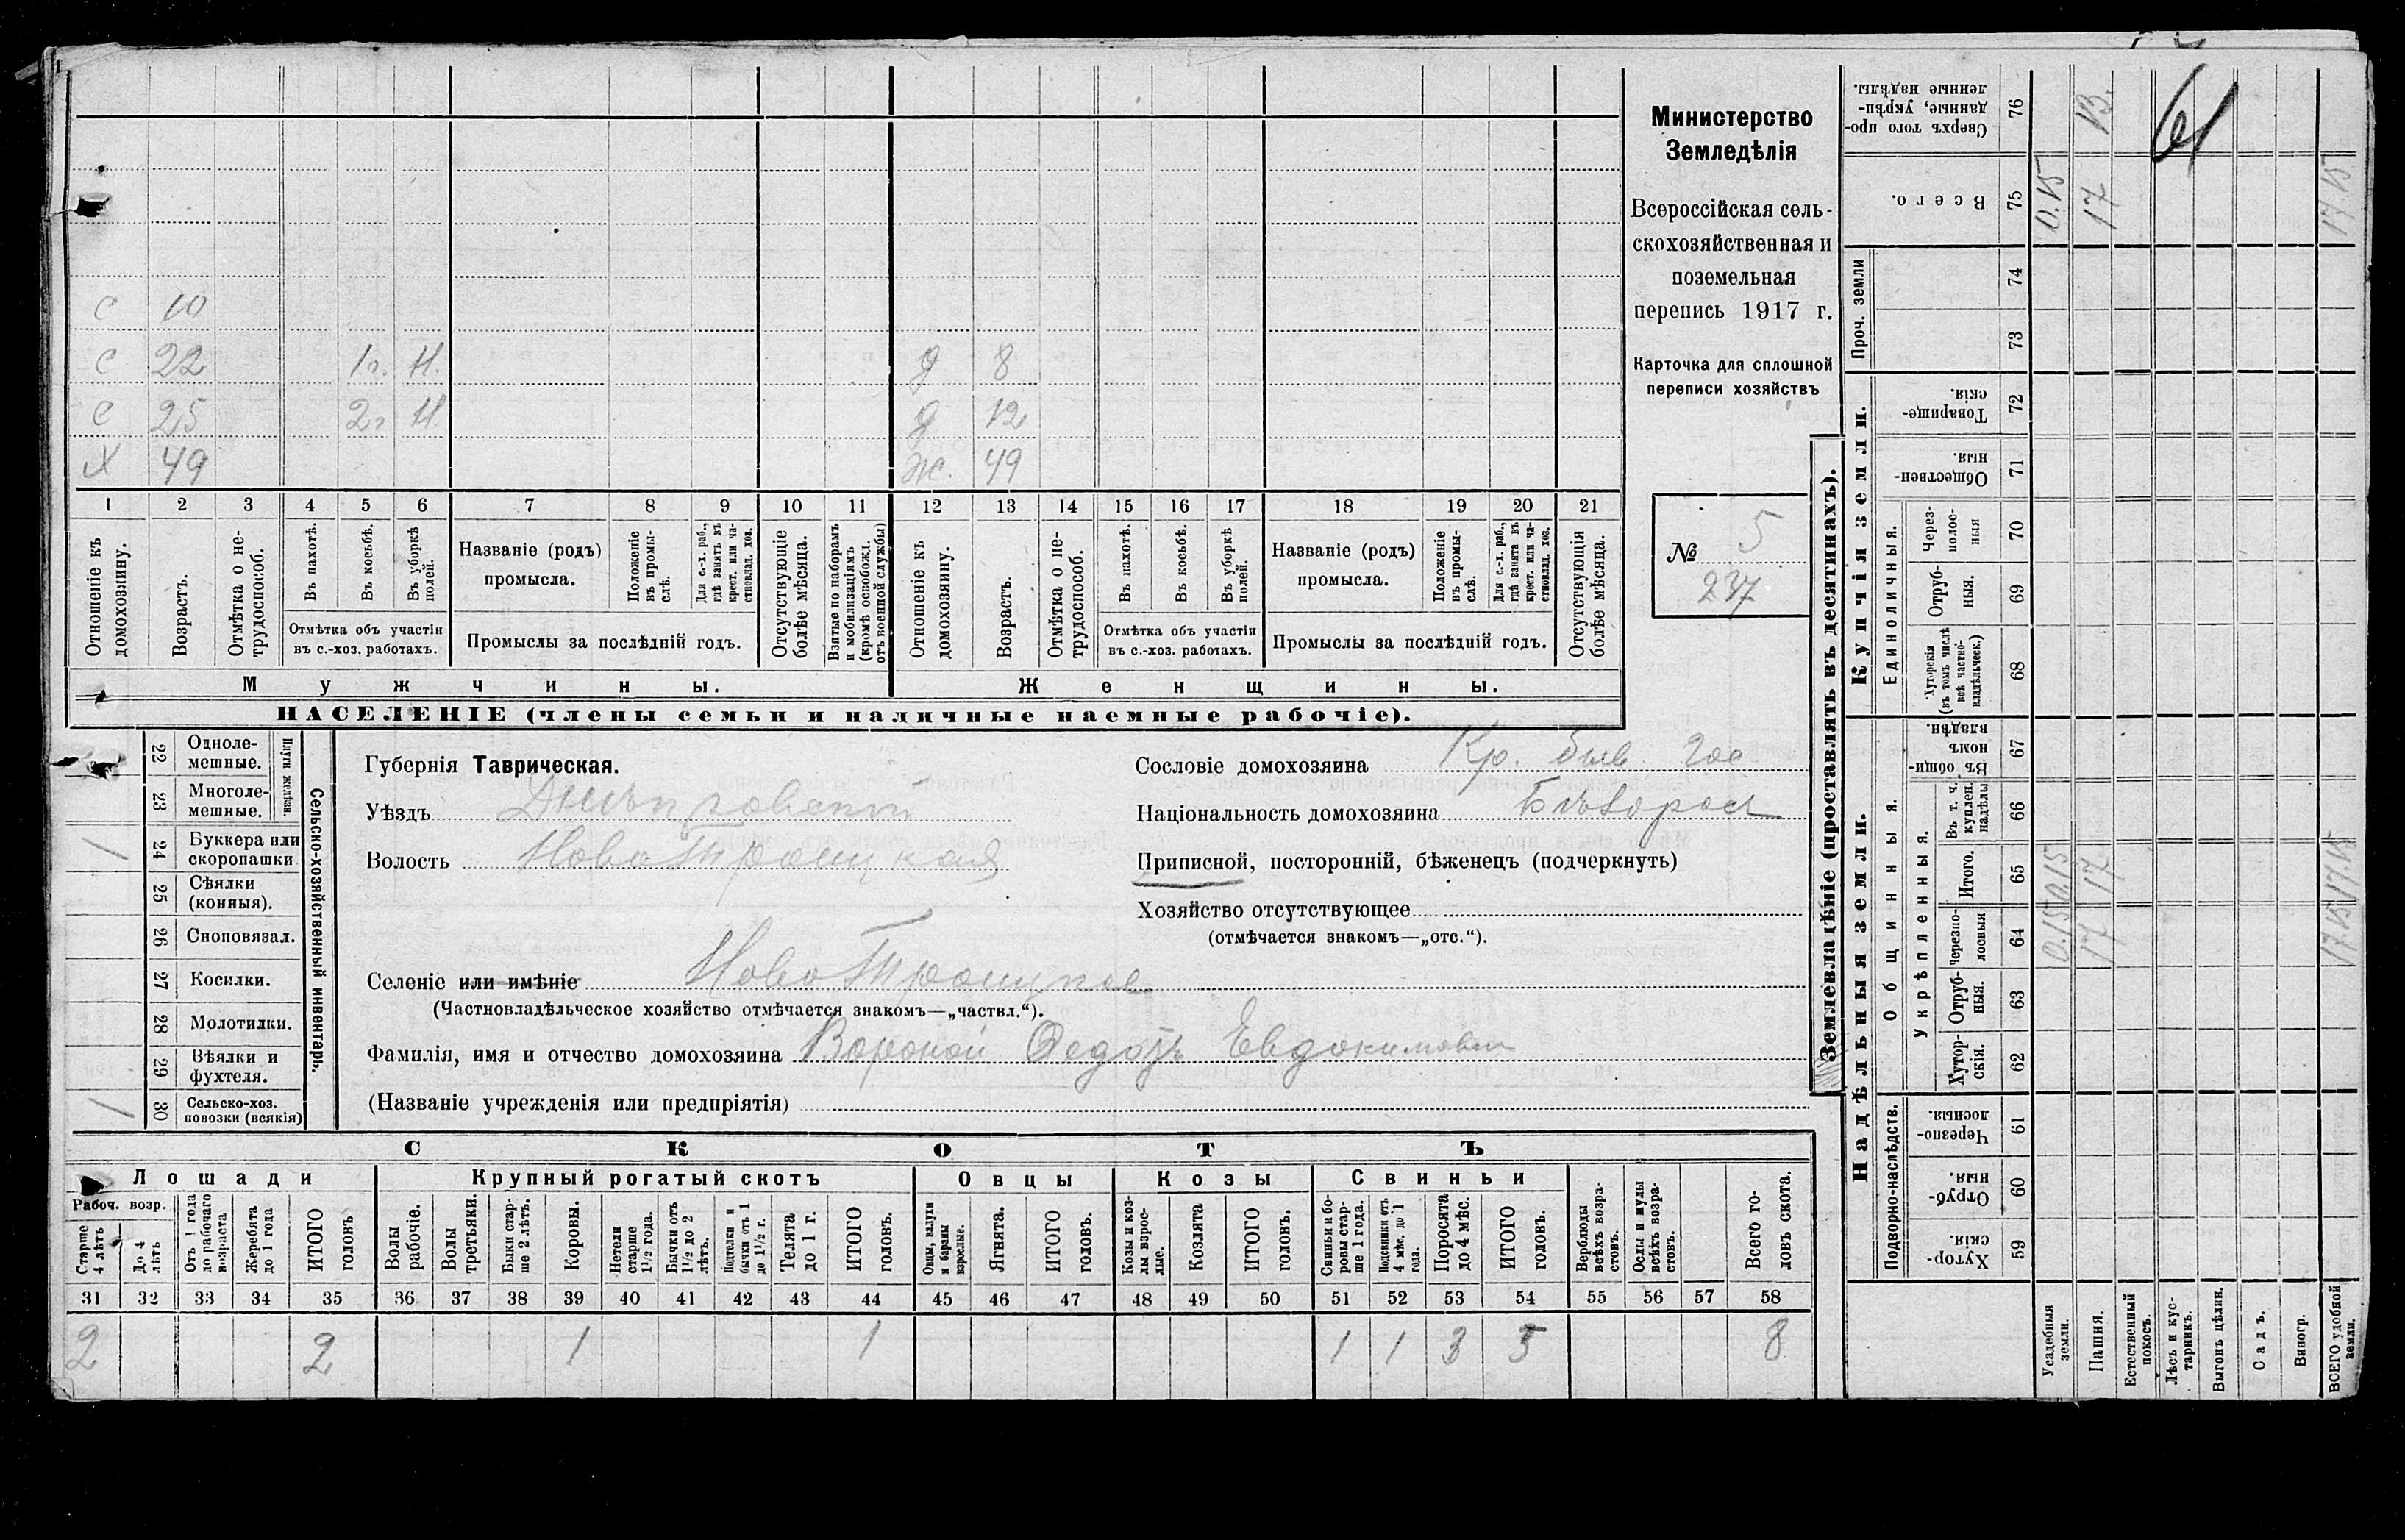 61
Министерство
Земледѣлія
Всероссійская сель-
скохозяйственная и
поземельная
перепись 1917 г.
Карточка для сплошной
переписи хозяйствъ
№ 5
237
С 10
С 22 1г. Н. д 8
С 25 2г Н. д 12
Х 49 Ж. 49
1 2 3 4 5 6 7 8 9 10 11 12 13 14 15 16 17 18 19 20 21
Отношеніе къ домохозяину.
Возрастъ.
Отмѣтка о не-трудоспособ.
Въ пахотѣ.
Въ косьбѣ.
Въ уборкѣ полей.
Отмѣтка объ участіи
въ с.-хоз. работахъ.
Названіе (родъ)
промысла.
Положеніе въ промы-слѣ.
Для с.-х. раб., гдѣ занятъ въ крест. или ча-стновлад. хоз.
Промыслы за послѣдній годъ.
Отсутствующіе болѣе мѣсяца.
Взятые по наборамъ и мобилизаціямъ (кромѣ освобожд. отъ военной службы)
Отношеніе къ домохозяину.
Возрастъ.
Отмѣтка о не-трудоспособ.
Въ пахотѣ.
Въ косьбѣ.
Въ уборкѣ полей.
Отмѣтка объ участіи
въ с.-хоз. работахъ.
Названіе (родъ)
промысла.
Положеніе въ промы-слѣ.
Для с.-х. раб., гдѣ занята въ крест. или ча-стновлад. хоз.
Промыслы за послѣдній годъ.
Отсутствующія болѣе мѣсяца.
Мужчины.
Женщины.
НАСЕЛЕНІЕ (члены семьи и наличные наемные рабочіе).
Сельско-хозяйственный инвентарь.
Плуги желѣзн.
22 Одноле-мешные.
23 Многоле-мешные.
/ 24 Буккера или скоропашки
25 Сѣялки (конныя).
26 Сноповязал.
27 Косилки.
28 Молотилки.
29 Вѣялки и фухтеля.
/ 30 Сельско-хоз. повозки (всякія)
Губернія Таврическая.
Уѣздъ Днѣпровскій
Волость Ново Троицкая
Селеніе или имѣніе Ново Троицкое
(Частновладѣльческое хозяйство отмѣчается знакомъ—„частвл.“).
Фамилія, имя и отчество домохозяина Вороной Федоръ Евдокимович
(Названіе учрежденія или предпріятія)
Сословіе домохозяина Кр. быв. гос
Національность домохозяина Бѣлорос
Приписной, посторонній, бѣженецъ (подчеркнуть)
Хозяйство отсутствующее
(отмѣчается знакомъ—„отс.“).
СКОТЪ
Лошади Крупный рогатый скотъ Овцы Козы Свиньи
Рабоч. возр.
Старше 4 лѣтъ
До 4 лѣтъ
Отъ 1 года до рабочаго возраста
Жеребята до 1 года
ИТОГО головъ
Волы рабочіе.
Волы третьяки.
Быки стар-ше 2 лѣтъ.
Коровы.
Нетели старше 1½ года.
Бычки отъ 1½ до 2 лѣтъ.
Подтелки и бычки отъ 1 до 1½ г.
Телята до 1 г.
ИТОГО головъ.
Овцы, валухи и бараны взрослые.
Ягнята.
ИТОГО головъ.
Козы и коз-лы взрос-лые.
Козлята
ИТОГО головъ.
Свиньи и бо-ровы стар-ше 1 года.
Подсвинки отъ 4 мѣс. до 1 года.
Поросята до 4 мѣс.
ИТОГО головъ.
Верблюды всѣхъ возра-стовъ.
Ослы и мулы всѣхъ возра-стовъ.
Всего го-ловъ скота.
31 32 33 34 35 36 37 38 39 40 41 42 43 44 45 46 47 48 49 50 51 52 53 54 55 56 57 58
2 2 1 1 1 1 3 5 8
Землевладѣніе (проставлять въ десятинахъ).
Надѣльныя земли.
Купчія земли.
Проч. земли
Подворно-наслѣдств.
Общинныя.
Укрѣпленныя.
Единоличныя.
Сверхъ того про-данные, укрѣп-ленные надѣлы. 76
Всего. 75
74
73
Товарище-скія. 72
Обществен-ныя. 71
Через-полос-ныя 70
Отруб-ныя. 69
Хуторскія (въ томъ числѣ всѣ частно-владѣльческ.) 68
Въ общин-номъ владѣн. 67
Въ т. ч. куплен. надѣлы 66
Итого. 65
Черезпо-лосныя 64
Отруб-ныя. 63
Хутор-скія. 62
Черезпо-лосныя. 61
Отруб-ныя. 60
Хутор-скія. 59
Усадебныя земли. 0.15 0.15 0.15
Пашня. 17 17 17
Естественный покосъ.
Лѣсъ и кус-тарникъ.
Выгонъ цѣлин.
Садъ.
Виногр.
ВСЕГО удобной земли. 17.15 17.15 17.15